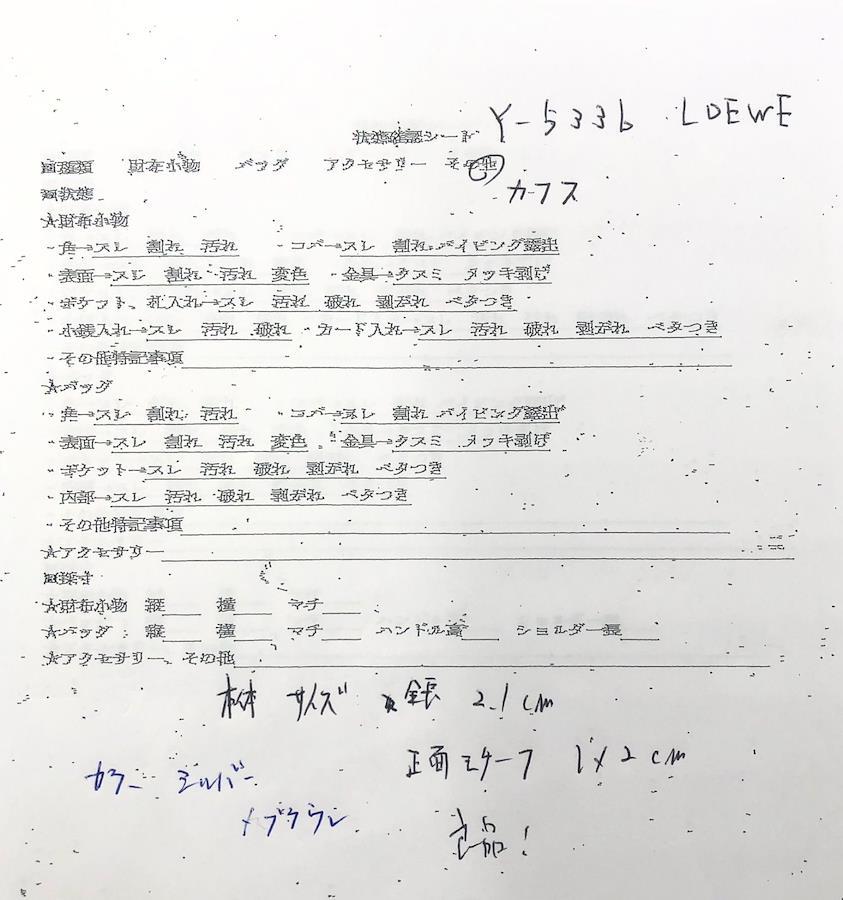 Y-5336 LOEWE
状態確認シート
□種類 財布小物 バッグ アクセサリー その他
カフス
□状態
★財布小物
・角→スレ 割れ 汚れ ・コバ→スレ 割れ パイピング露出
・表面→スレ 割れ 汚れ 変色 ・金具→クスミ メッキ剥げ
・ポケット、札入れ→スレ 汚れ 破れ 剥がれ ベタつき
・小銭入れ→スレ 汚れ 破れ ・カード入れ→スレ 汚れ 破れ 剥がれ ベタつき
・その他特記事項
★バッグ
・角→スレ 割れ 汚れ ・コバ→スレ 割れ パイピング露出
・表面→スレ 割れ 汚れ 変色 ・金具→クスミ メッキ剥げ
・ポケット→スレ 汚れ 破れ 剥がれ ベタつき
・内部→スレ 汚れ 破れ 剥がれ ベタつき
・その他特記事項
★アクセサリー
□採寸
★財布小物 縦 横 マチ
★バッグ 縦 横 マチ ハンドル高 ショルダー長
★アクセサリー、その他
本体 サイズ 全長 2.1cm
正面モチーフ 1×2cm
カラー シルバー
×ブラウン
良品!